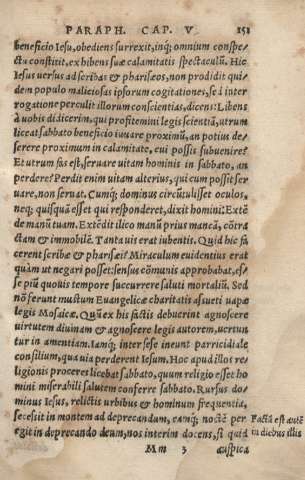 PARAPH. CAP. V 151
beneficio Iesu, obediens surrexit, inq; omnium conspe-
ctu constitit, exhibens suæ calamitatis spectaculũ. Hic
Iesus uersus ad scribas & phariseos, non prodidit qui-
dem populo maliciosas ipsorum cogitationes, sed inter
rogatione perculit illorum conscientias, dicens: Libens
à uobis didicerim, qui profitemini legis scientiã, utrum
liceat sabbato beneficio iuuare proximũ, an potius de-
serere proximum in calamitate, cui possis subuenire?
Et utrum fas est, seruare uitam hominis in sabbato, an
perdere? Perdit enim uitam alterius, qui cum possit ser
uare, non seruat. Cumq; dominus circũtulisset oculos,
neq; quisquã esset qui responderet, dixit homini: Extẽ
de manũ tuam. Extẽdit ilico manũ prius mancã, cõtra
ctam & immobilẽ. Tanta uis erat iubentis. Quid hic fa
cerent scribæ & pharisæi? Miraculum euidentius erat
quàm ut negari posset: sensus cõmunis approbabat, es-
se piũ quouis tempore succurrere saluti mortaliũ. Sed
nõ ferunt mustum Euangelicæ charitatis assueti uapæ
legis Mosaicæ. Qui ex his factis debuerint agnoscere
uirtutem diuinam & agnoscere legis autorem, uertun
tur in amentiam. Iamq; inter sese ineunt parricidiale
consilium, qua uia perderent Iesum. Hoc apud illos re-
ligionis proceres licebat sabbato, quum religio esset ho
mini miserabili salutem conferre sabbato. Rursus do-
minus Iesus, relictis urbibus & hominum frequentia,
secessit in montem ad deprecandum, eamq; noctẽ per
egit in deprecando deum, nos interim docens, si quid
Factũ est autẽ
in diebus illis
Mm 3 auspica